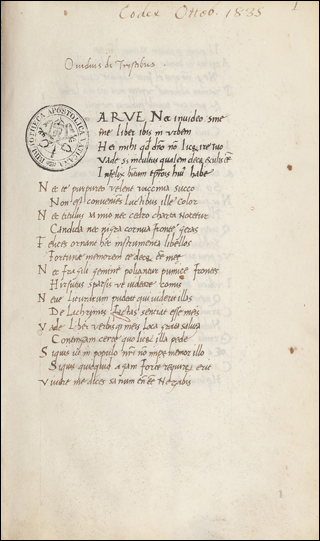 Codex Ottob. 1835
1
Ouidius de Tristibus.
BIBLIOTHECA APOSTOLICA VATICANA
ARVE, Nec inuideo sine
me liber ibis in urbem
Hei mihi qd dño nō licet ire tuo
Vade sed incultus qualem decet exulis ēē
Infelix habitum tēporis huius habe
Nec te purpureo uelent uaccinia succo
Non est conueniens Luctibus ille Color
Nec titulus minio nec cedro charta Notetur
Candida nec nigra cornua fronte geras
Felices ornent hec instrumenta libellos
Fortunae memorem te decet ēē meae
Nec fragili gemine poliantur pumice frontes
Hirsutus sparsis ut uideare comis
Neue liturarum pudeat qui uiderit illas
De Lachrymis factas sentiat esse meis
Vade Liber uerbisq meis Loca grata saluta
Contingam certe quo licet illa pede
Siquis ut in populo nr̄i nō īmemor illo
Siquis qui quid agam forte requirat erit
Viuere me dices saluum tn̄ ēē Negabis